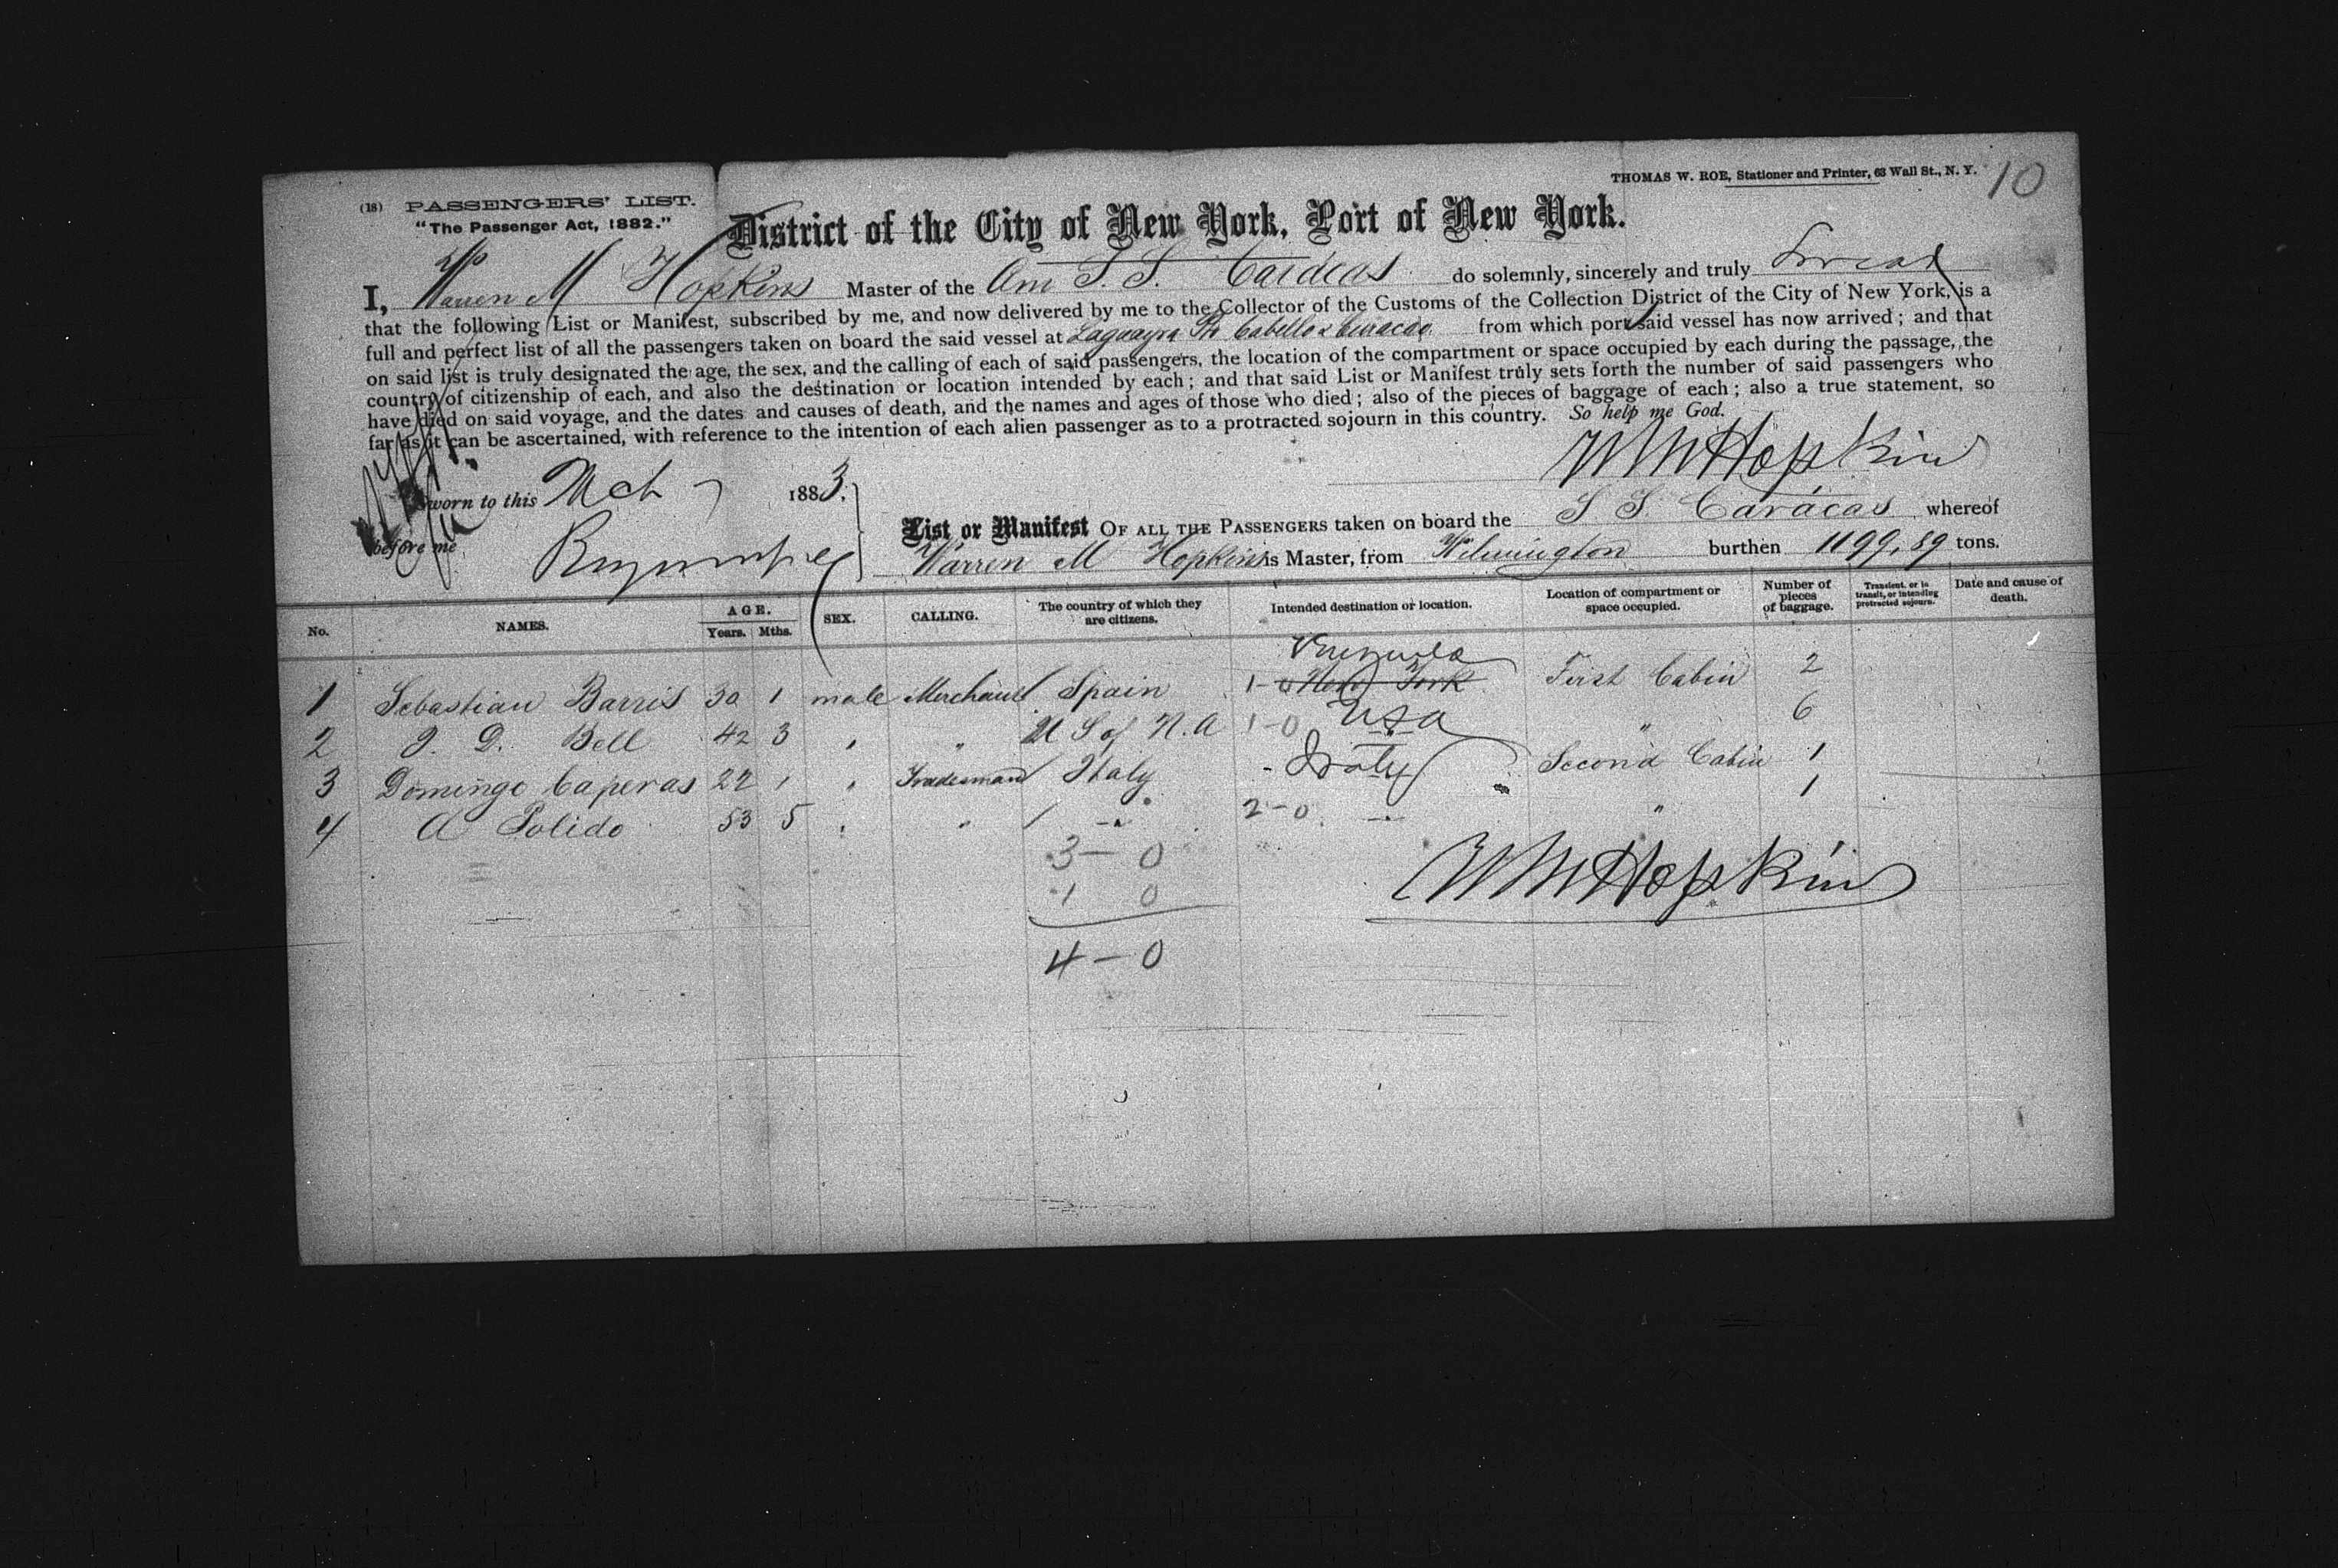 THOMAS W. ROE, Stationer and Printer, 63 Wall St., N. Y. 10
(18) PASSENGERS' LIST.
"The Passenger Act, 1882."
District of the City of New York, Port of New York.
I, Warren M Hopkins Master of the Am S. S. Caracas do solemnly, sincerely and truly Swear
that the following List or Manifest, subscribed by me, and now delivered by me to the Collector of the Customs of the Collection District of the City of New York, is a
full and perfect list of all the passengers taken on board the said vessel at Laguayra Pto Cabello & Curacao from which port said vessel has now arrived; and that
on said list is truly designated the age, the sex, and the calling of each of said passengers, the location of the compartment or space occupied by each during the passage, the
country of citizenship of each, and also the destination or location intended by each; and that said List or Manifest truly sets forth the number of said passengers who
have died on said voyage, and the dates and causes of death, and the names and ages of those who died; also of the pieces of baggage of each; also a true statement, so
far as it can be ascertained, with reference to the intention of each alien passenger as to a protracted sojourn in this country. So help me God.
W M Hopkins
Sworn to this Mch 7 1883.
before me
List or Manifest OF ALL THE PASSENGERS taken on board the S S Caracas whereof
Warren M Hopkins is Master, from Wilmington burthen 1199,89 tons.
No. NAMES. AGE. Years. Mths. SEX. CALLING. The country of which they are citizens. Intended destination or location. Location of compartment or space occupied. Number of pieces of baggage. Transient, or in transit, or intending protracted sojourn. Date and cause of death.
Venezuela
1 Sebastian Barris 30 1 male Merchant Spain 1-0 New York First Cabin 2
2 J. D. Bell 42 3 " " U S of N. A 1-0 USA " 6
3 Domingo Caperas 22 1 " Tradesman Italy - Italy Second Cabin 1
4 A Polido 53 5 " " " 2-0 " " 1
3 - 0
1 0
4 - 0
W M Hopkins